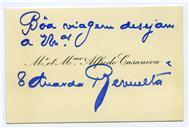 Bôa viagem desejam
a V. Exas
Mr. et Mme Alfredo Casanova
e Eduarda Bermudes